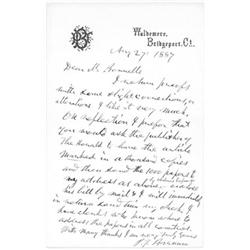 Waldemere,
Bridgeport, Ct.
Aug 27' 1887
Dear Mr
I return proofs
with some slight corrections or
alterations I like it very much.
On reflection I prefer that
you would ask the publisher
to have the article
marked in a hundred copies
and then send the 1000 papers to
my address as above enclose
his bill by mail & I will immediately
in return send him my check. I
have clerks who know where to
address the papers in all countries.
With many thanks I am very truly yours
P.T. Barnum